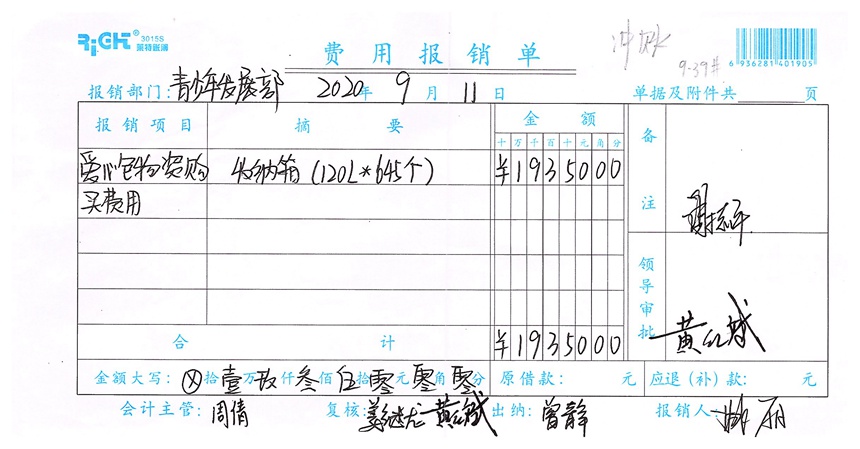 RiGHT® 3015S
莱特账簿
费用报销单
冲账
9-39#
6 936281 401905
报销部门:青少年发展部 2020年 9月 11日 单据及附件共 页
报销项目 摘要 金额 备注
十万千百十元角分
爱心包物资购 收纳箱(120L*645个) ¥1935000
买费用
领导审批 黄红斌
合计 ¥1935000
金额大写:⊗拾壹万玖仟叁佰伍拾零元零角零分 原借款: 元 应退(补)款: 元
会计主管:周倩 复核:姜继尤 黄红斌 出纳:曾静 报销人: 丽